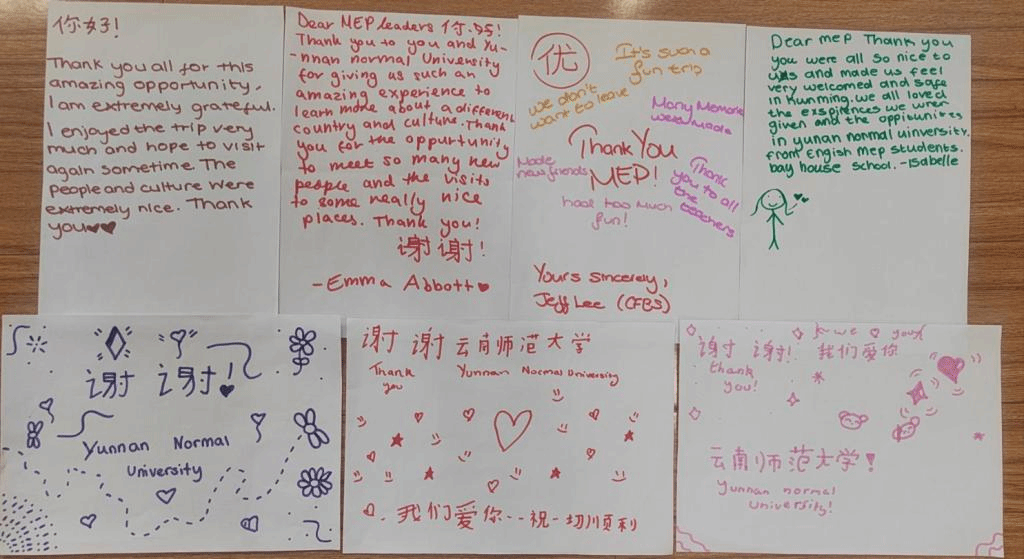 你好!
Thank you all for this
amazing opportunity,
I am extremely grateful.
I enjoyed the trip very
much and hope to visit
again sometime. The
people and culture were
extremely nice. Thank
you
Dear MEP leaders 你好!
Thank you to you and Yu-
-nnan normal University
for giving us such an
amazing experience to
learn more about a different
country and culture. Thank
you for the oppurtunity
to meet so many new
people and the visits
to some really nice
places. Thank you!
谢谢!
-Emma Abbott
优
It's such a
fun trip
we don't
want to leave
Many Memories
were Made
Thank You
MEP!
Made
new friends
Thank
you to all
the teachers
had too much
fun!
Yours sincerely,
Jeff Lee (CFBS)
Dear mep Thank you
you were all so nice to
us and made us feel
very welcomed and safe
in Kunming. we all loved
the exspiriences we wrer
given and the oppitunities
in yunan normal uinversity.
from Engish mep students.
bay house school. -Isabelle
谢 谢!
Yunnan Normal
University
谢 谢 云南师范大学
Thank
you
Yunnan Normal University
我们爱你--祝一切顺利
we you
谢 谢! 我们爱你
thank
you!
云南师范大学!
Yunnan normal
university!